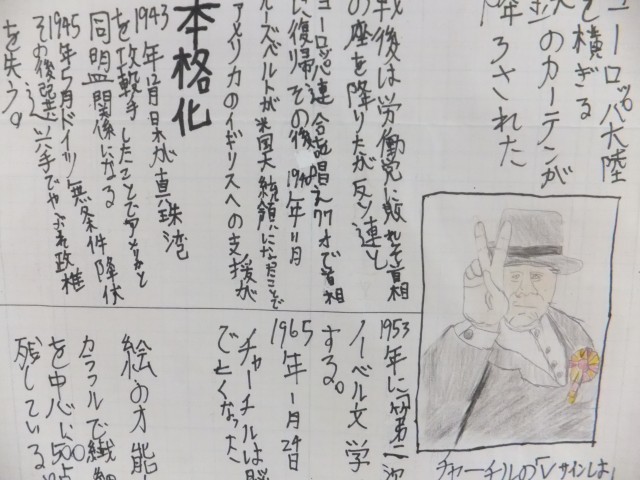 ヨーロッパ大陸
を横ぎる
鉄のカーテンが
降ろされた
戦後は労働党に敗れ、首相
の座を降りたが反ソ連と
ヨーロッパ連合を唱え77才で首相
に復帰。その後1940年11月
ルーズベルトが米国大統領になったことで
アメリカのイギリスへの支援が
本格化
1943年12月日本が真珠湾
を攻撃したことでアメリカと
同盟関係になる
1945年5月ドイツ無条件降伏
その後選挙でやぶれ政権
を失う。
チャーチルの「Vサインは」
1953年に「第二次
ノーベル文学
する。
1965年1月24日
チャーチルは脳
で亡くなった
絵の才能
カラフルで繊細
を中心に500点
残している